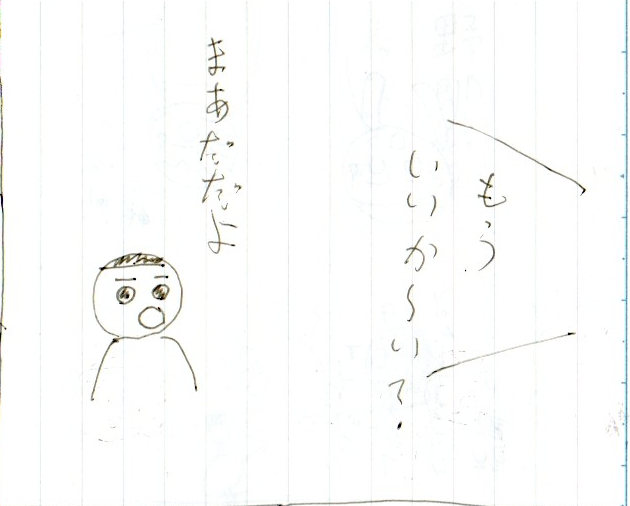 もう
いいか〜い?
まあだだよ